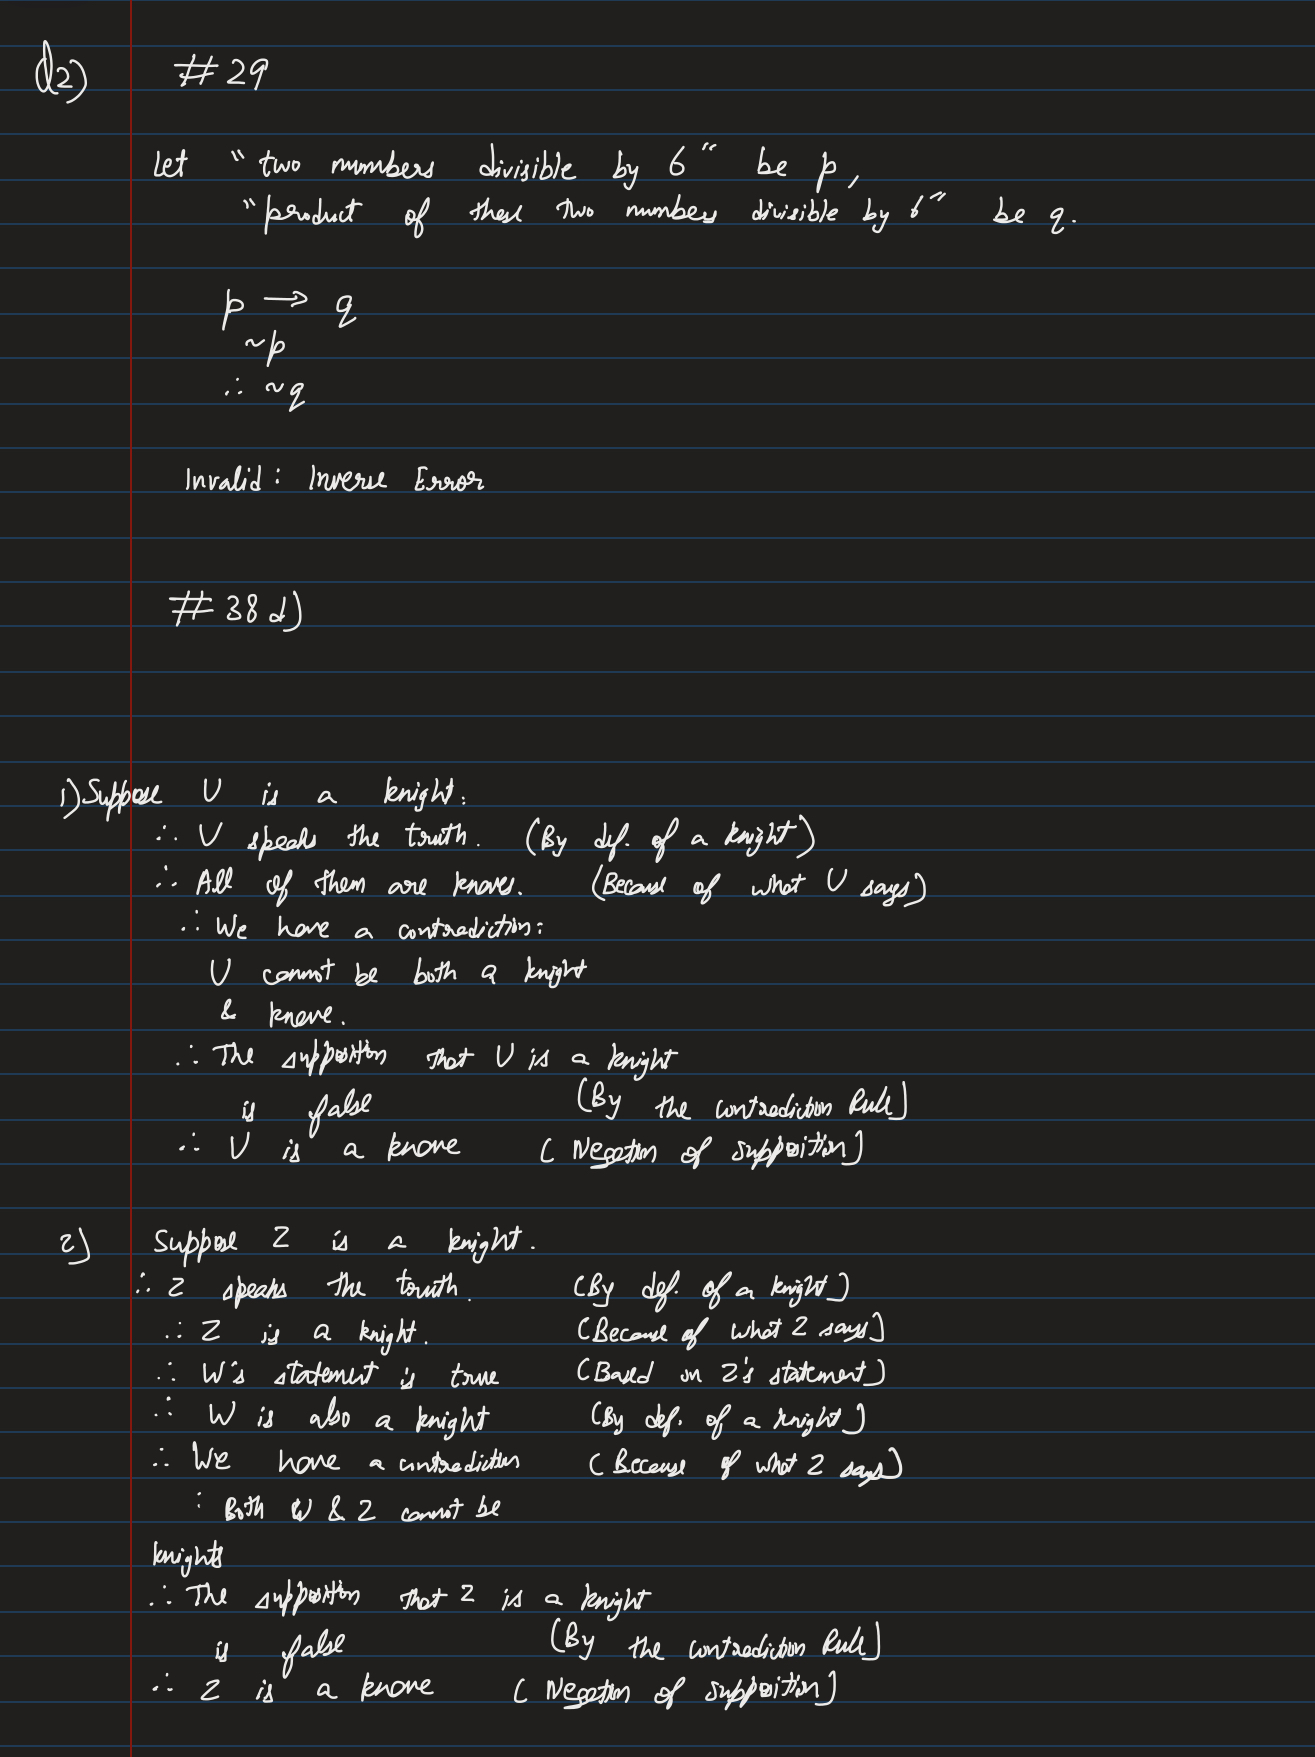 Q2) #29
Let "two numbers divisible by 6" be p,
"product of these two numbers divisible by 6" be q.
p → q
~p
∴ ~q
Invalid: Inverse Error
#38 d)
1) Suppose U is a knight.
∴ U speaks the truth. (By def. of a knight)
∴ All of them are knaves. (Because of what U says)
∴ We have a contradiction:
U cannot be both a knight
& knave.
∴ The supposition that U is a knight
is false (By the contradiction Rule)
∴ U is a knave (Negation of supposition)
2) Suppose Z is a knight.
∴ Z speaks the truth. (By def. of a knight)
∴ Z is a knight. (Because of what Z says)
∴ W's statement is true (Based on Z's statement)
∴ W is also a knight (By def. of a knight)
∴ We have a contradiction (Because of what Z says)
: Both W & Z cannot be
knights
∴ The supposition that Z is a knight
is false (By the contradiction Rule)
∴ Z is a knave (Negation of supposition)